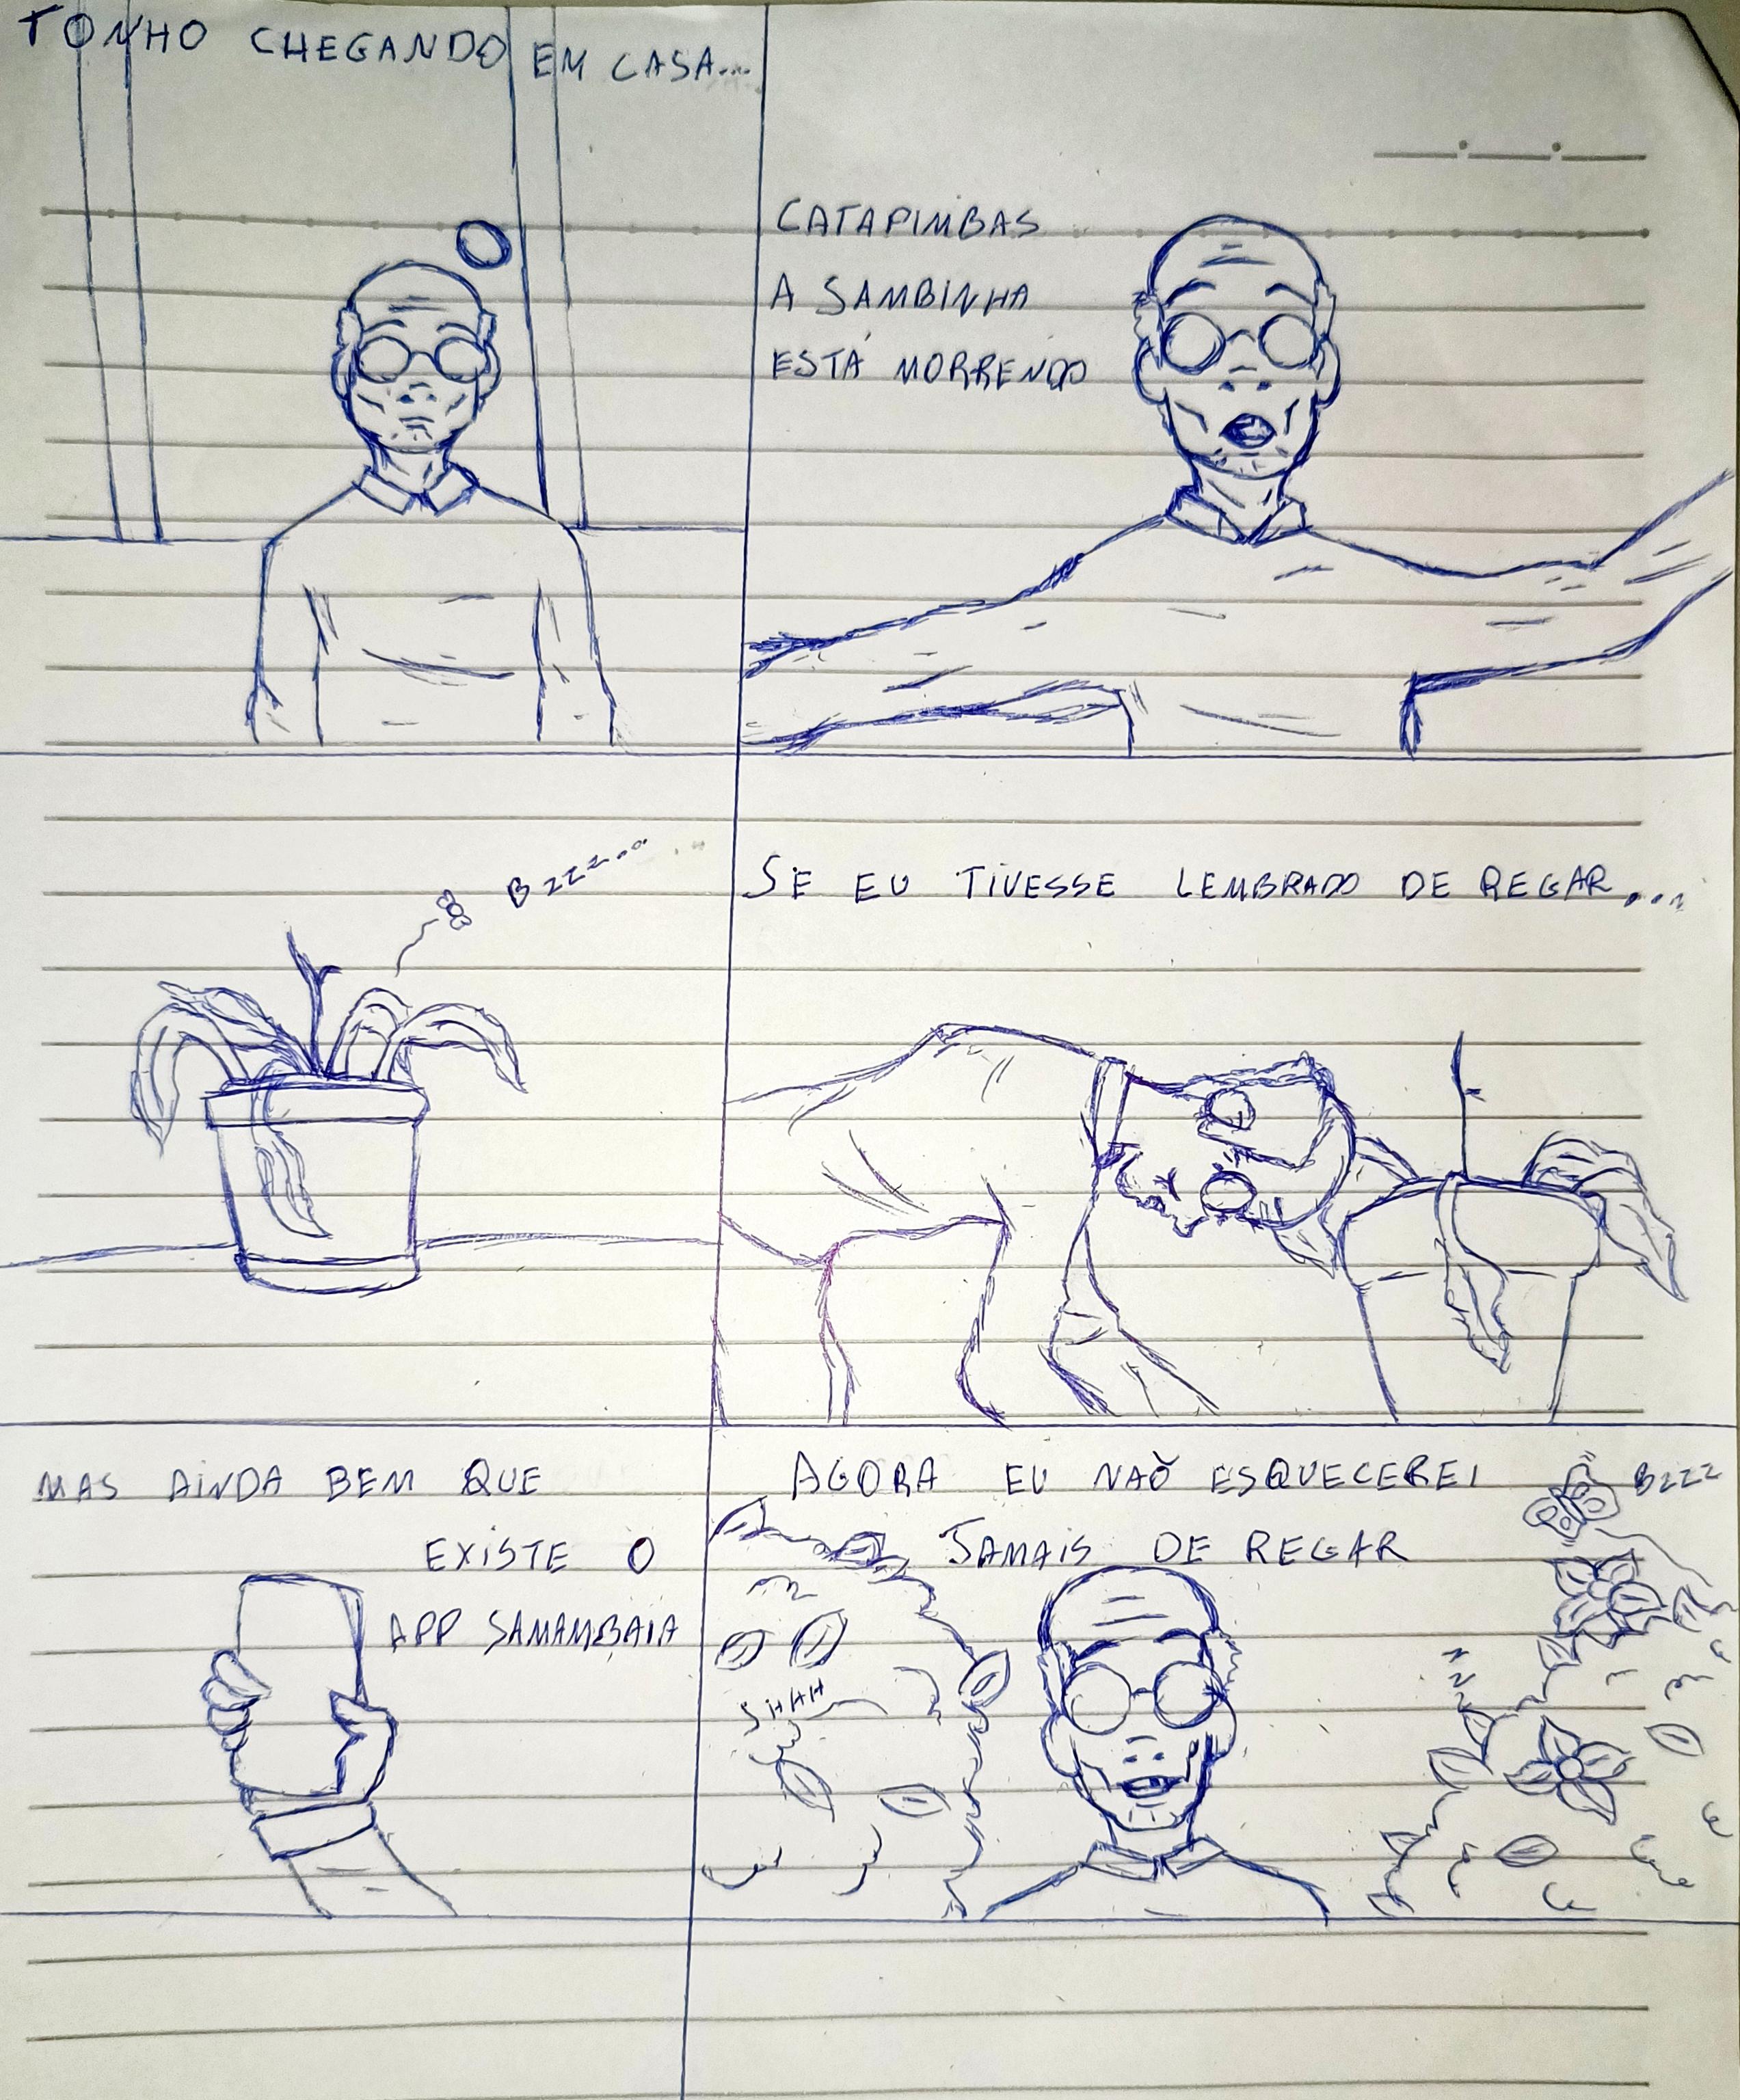 TONHO CHEGANDO EM CASA...
CATAPIMBAS
A SAMBINHA
ESTÁ MORRENDO
BZZZ...
SE EU TIVESSE LEMBRADO DE REGAR...
MAS AINDA BEM QUE
EXISTE O
APP SAMAMBAIA
AGORA EU NÃO ESQUECEREI
JAMAIS DE REGAR
BZZZ